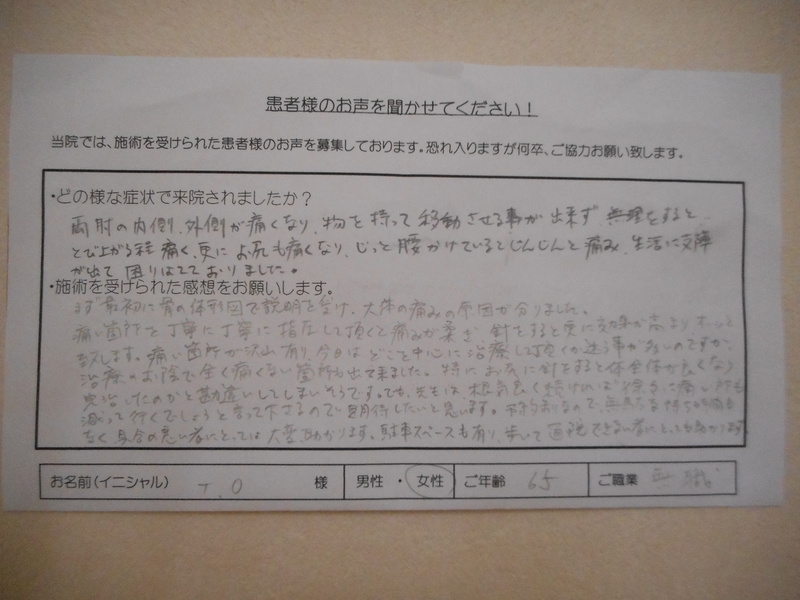 患者様のお声を聞かせてください！
当院では、施術を受けられた患者様のお声を募集しております。恐れ入りますが何卒、ご協力お願い致します。
・どの様な症状で来院されましたか？
両肘の内側、外側が痛くなり、物を持って移動させる事が出来ず 無理をすると
とび上がる程痛く、更にお尻も痛くなり、じっと腰かけているとじんじんと痛み、生活に支障
が出て 困りはてておりました。
・施術を受けられた感想をお願いします。
まず最初に骨の体形図で説明を受け、大体の痛みの原因が分りました。
痛い箇所を丁寧に丁寧に指圧して頂くと痛みが柔ぎ 針をすると更に効果が高まりホッと
致します。痛い箇所が沢山有り、今日はどこを中心に治療して頂くか迷う事が多いのですが、
治療のお陰で全く痛くない箇所も出て来ました。特にお尻に針をすると体全体が良くなり
完治したのかと勘違いしてしまいそうです。でも、先生は、根気良く続ければ徐々に痛い所も
減って行くでしょうと言って下さるので期待したいと思います。予約制なので、無駄な待ち時間も
なく具合の悪い者にとっては大変助かります。駐車スペースも有り、歩いて通院できない者にとっても助かります
お名前（イニシャル） T.O 様 男性 ・ 女性 ご年齢 65 ご職業 無職